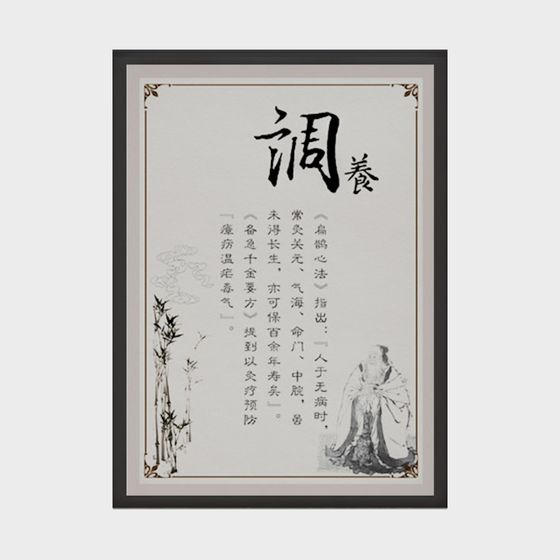 调
養
《扁鹊心法》指出：『人于无病时，
常灸关元、气海、命门、中脘，虽
未得长生，亦可保百余年寿矣』。
《备急千金要方》提到以灸疗预防
『瘴疠温疟毒气』。